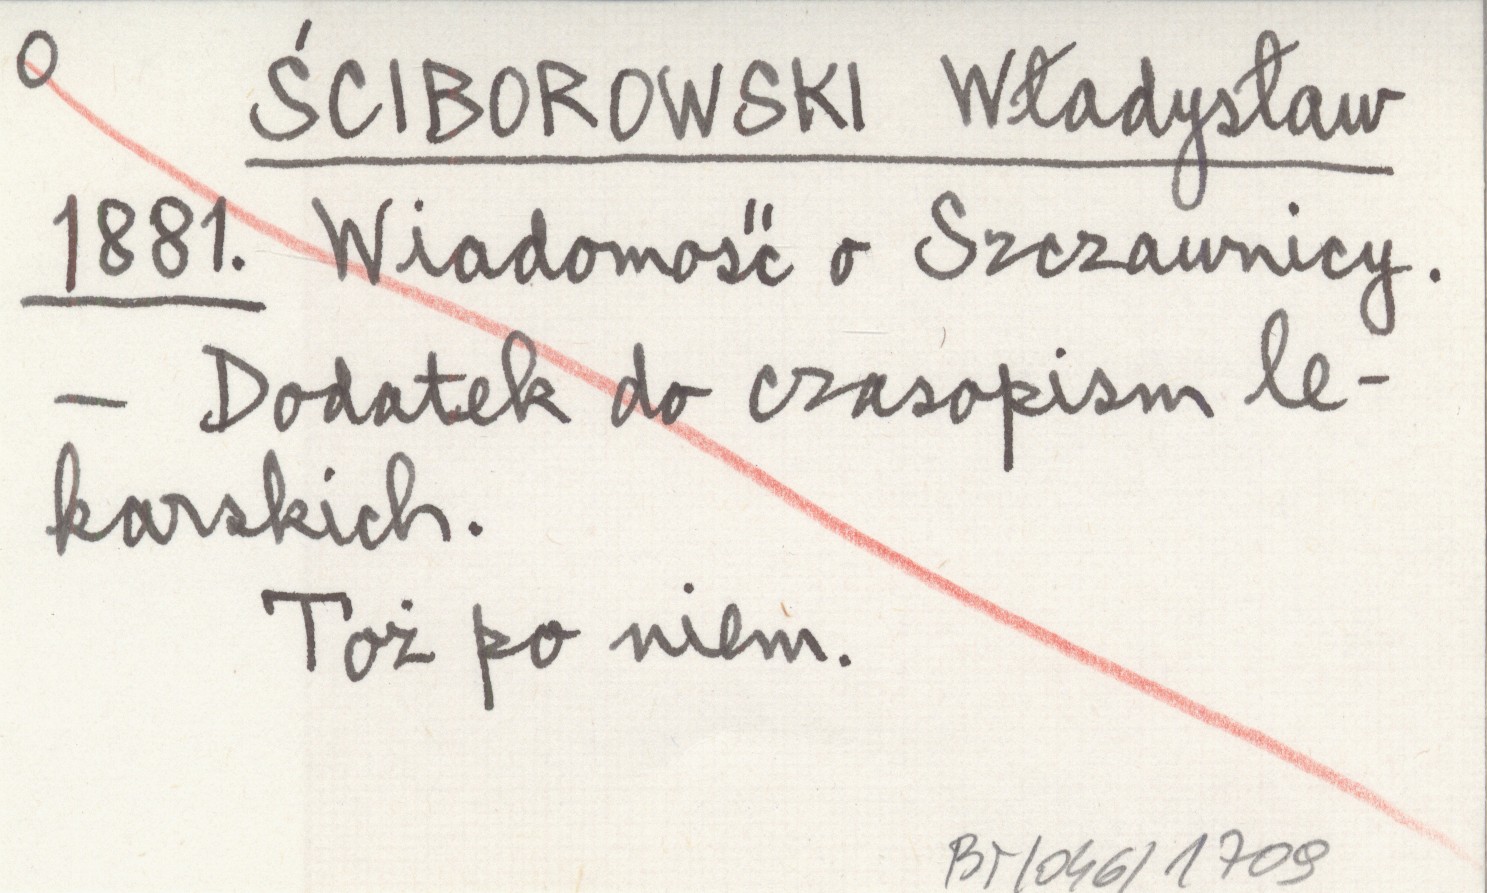 O ŚCIBOROWSKI Władysław
1881. Wiadomość o Szczawnicy.
— Dodatek do czasopism le-
karskich.
Toż po niem.
BT/046/1709